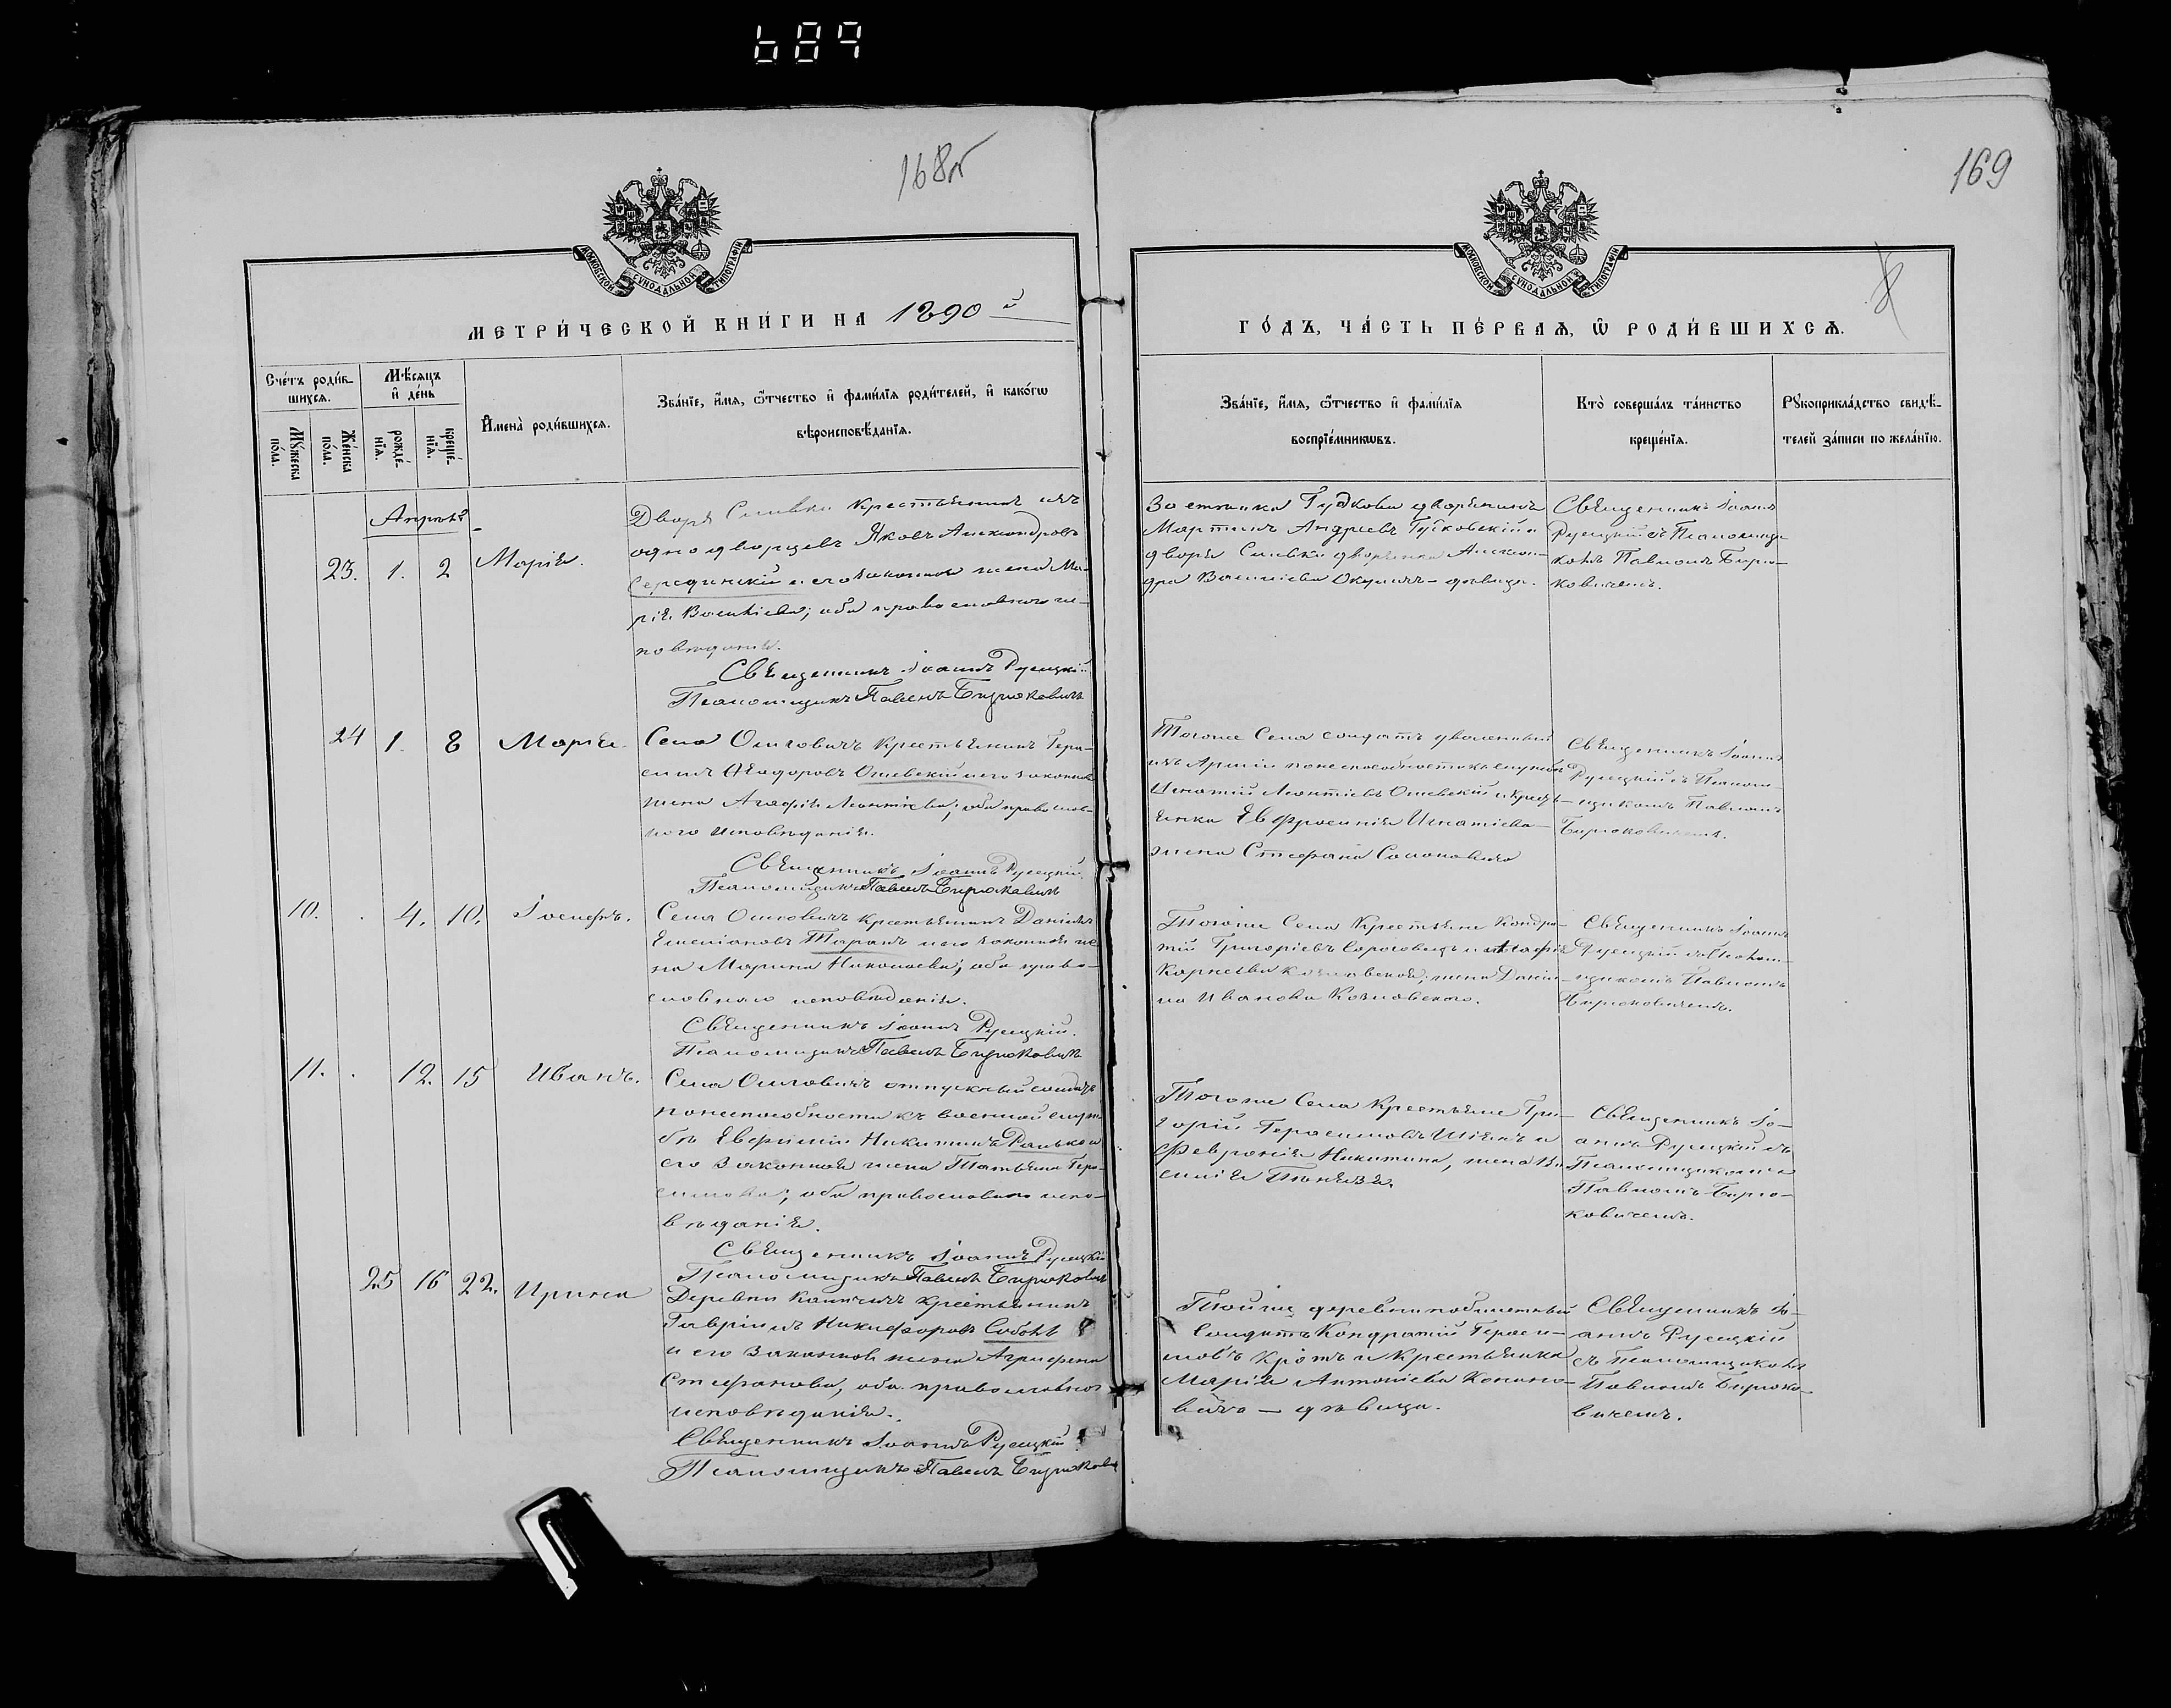 689
168 об
169
МОСКОВСКОЙ СѴНОДАЛЬНОЙ ТИПОГРАФІИ
МОСКОВСКОЙ СѴНОДАЛЬНОЙ ТИПОГРАФІИ
МЕТРИ́ЧЕСКОЙ КНИ́ГИ НА 1890 й
ГО́ДЪ, ЧА́СТЬ ПЕ́РВАѦ, Ѡ҆ РОДИ́ВШИХСѦ.
Сче́тъ роди́в-
шихсѧ.
Мѣ́сяцъ
и҆ де́нь
Мꙋ́жеска
по́ла.
Же́нска
по́ла.
рожде́-
нїѧ.
креще́-
нїѧ.
И҆мена̀ роди́вшихсѧ.
Зва́нїе, и҆́мѧ, ѻ҆́тчество и҆ фами́лїѧ роди́телей, и҆ како́гѡ
вѣроисповѣ́данїѧ.
Зва́нїе, и҆́мѧ, ѻ҆́тчество и҆ фами́лїѧ
воспрїе́мникѡвъ.
Кто̀ соверша́лъ та́инство
креще́нїѧ.
Рꙋкоприкла́дство свидѣ́-
телей за́писи по жела́нїю.
Апрель
23. 1. 2 Марія.
Двора Сливки крестьянинъ изъ
однодворцевъ Яковъ Александровъ
Серединскій и его законная жена Ма-
рія Васильева; оба православнаго ис-
поведанія.
Священникъ Іоаннъ Русецкій
Псаломщикъ Павелъ Бирюковичъ
Застенка Гудкова дворянинъ
Мартинъ Андреевъ Гутковскій и
двора Сливки дворянка Алексан-
дра Васильева Окуличъ - девица.
Священникъ Іоаннъ
Русецкій съ Псаломщи-
комъ Павломъ Бирю-
ковичемъ.
24 1. 8 Марія.
Села Ольговичъ крестьянинъ Гера-
симъ Ѳеодоровъ Ольвскій и его законная
жена Агафія Леонтіева; оба православ-
наго исповѣданія.
Священникъ Іоаннъ Русецкій.
Псаломщикъ Павелъ Бирюковичъ
Тогоже Села солдатъ уволенный
изъ Арміи по неспособности къ службѣ
Игнатій Леонтіевъ Ольвскій и крест-
янка Евфросинія Игнатіева
жена Стефана
Священникъ Іоаннъ
Русецкій съ Псалом-
щикомъ Павломъ
Бирюковичемъ.
10. 4. 10. Іосифъ.
Села Ольговичъ крестьянинъ Даніилъ
Емеліановъ Таранъ и его законная же-
на Марина Николаева; оба право-
славнаго исповѣданія.
Священникъ Іоаннъ Русецкій.
Псаломщикъ Павелъ Бирюковичъ
Тогоже Села Крестьяне Кондра-
тій Григоріевъ и Агафія
Корнеева Козловская; жена Дани-
ла Иванова Козловскаго.
Священникъ Іоаннъ
Русецкій съ Псалом-
щикомъ Павломъ
Бирюковичемъ.
11. 12. 15 Иванъ.
Села Ольговичъ отпускный солдатъ
по неспособности къ военной служ-
бѣ Евфимій Никитинъ Ранько и
его законная жена Татьяна Гера-
симова; оба православнаго испо-
вѣданія.
Священникъ Іоаннъ Русецкій
Псаломщикъ Павелъ Бирюковичъ
Тогоже Села Крестьяне Гри-
горій Герасимовъ и
Февронія Никитина, жена Ва-
силія
Священникъ Іо-
аннъ Русецкій съ
Псаломщикомъ
Павломъ Бирю-
ковичемъ.
25 16 22. Ирина
Деревни крестьянинъ
Гавріилъ Никифоровъ Соболь
и его законная жена Агрифена
Стефанова, оба православнаго
исповѣданія.
Священникъ Іоаннъ Русецкій
Псаломщикъ Павелъ Бирюкович
Тойже деревни побилетный
Солдатъ Кондратій Гераси-
мовъ Кротъ и Крестьянка
Марія Антоніева
— дѣвица.
Священникъ Іо-
аннъ Русецкій
съ Псаломщикомъ
Павломъ Бирюко-
вичемъ.